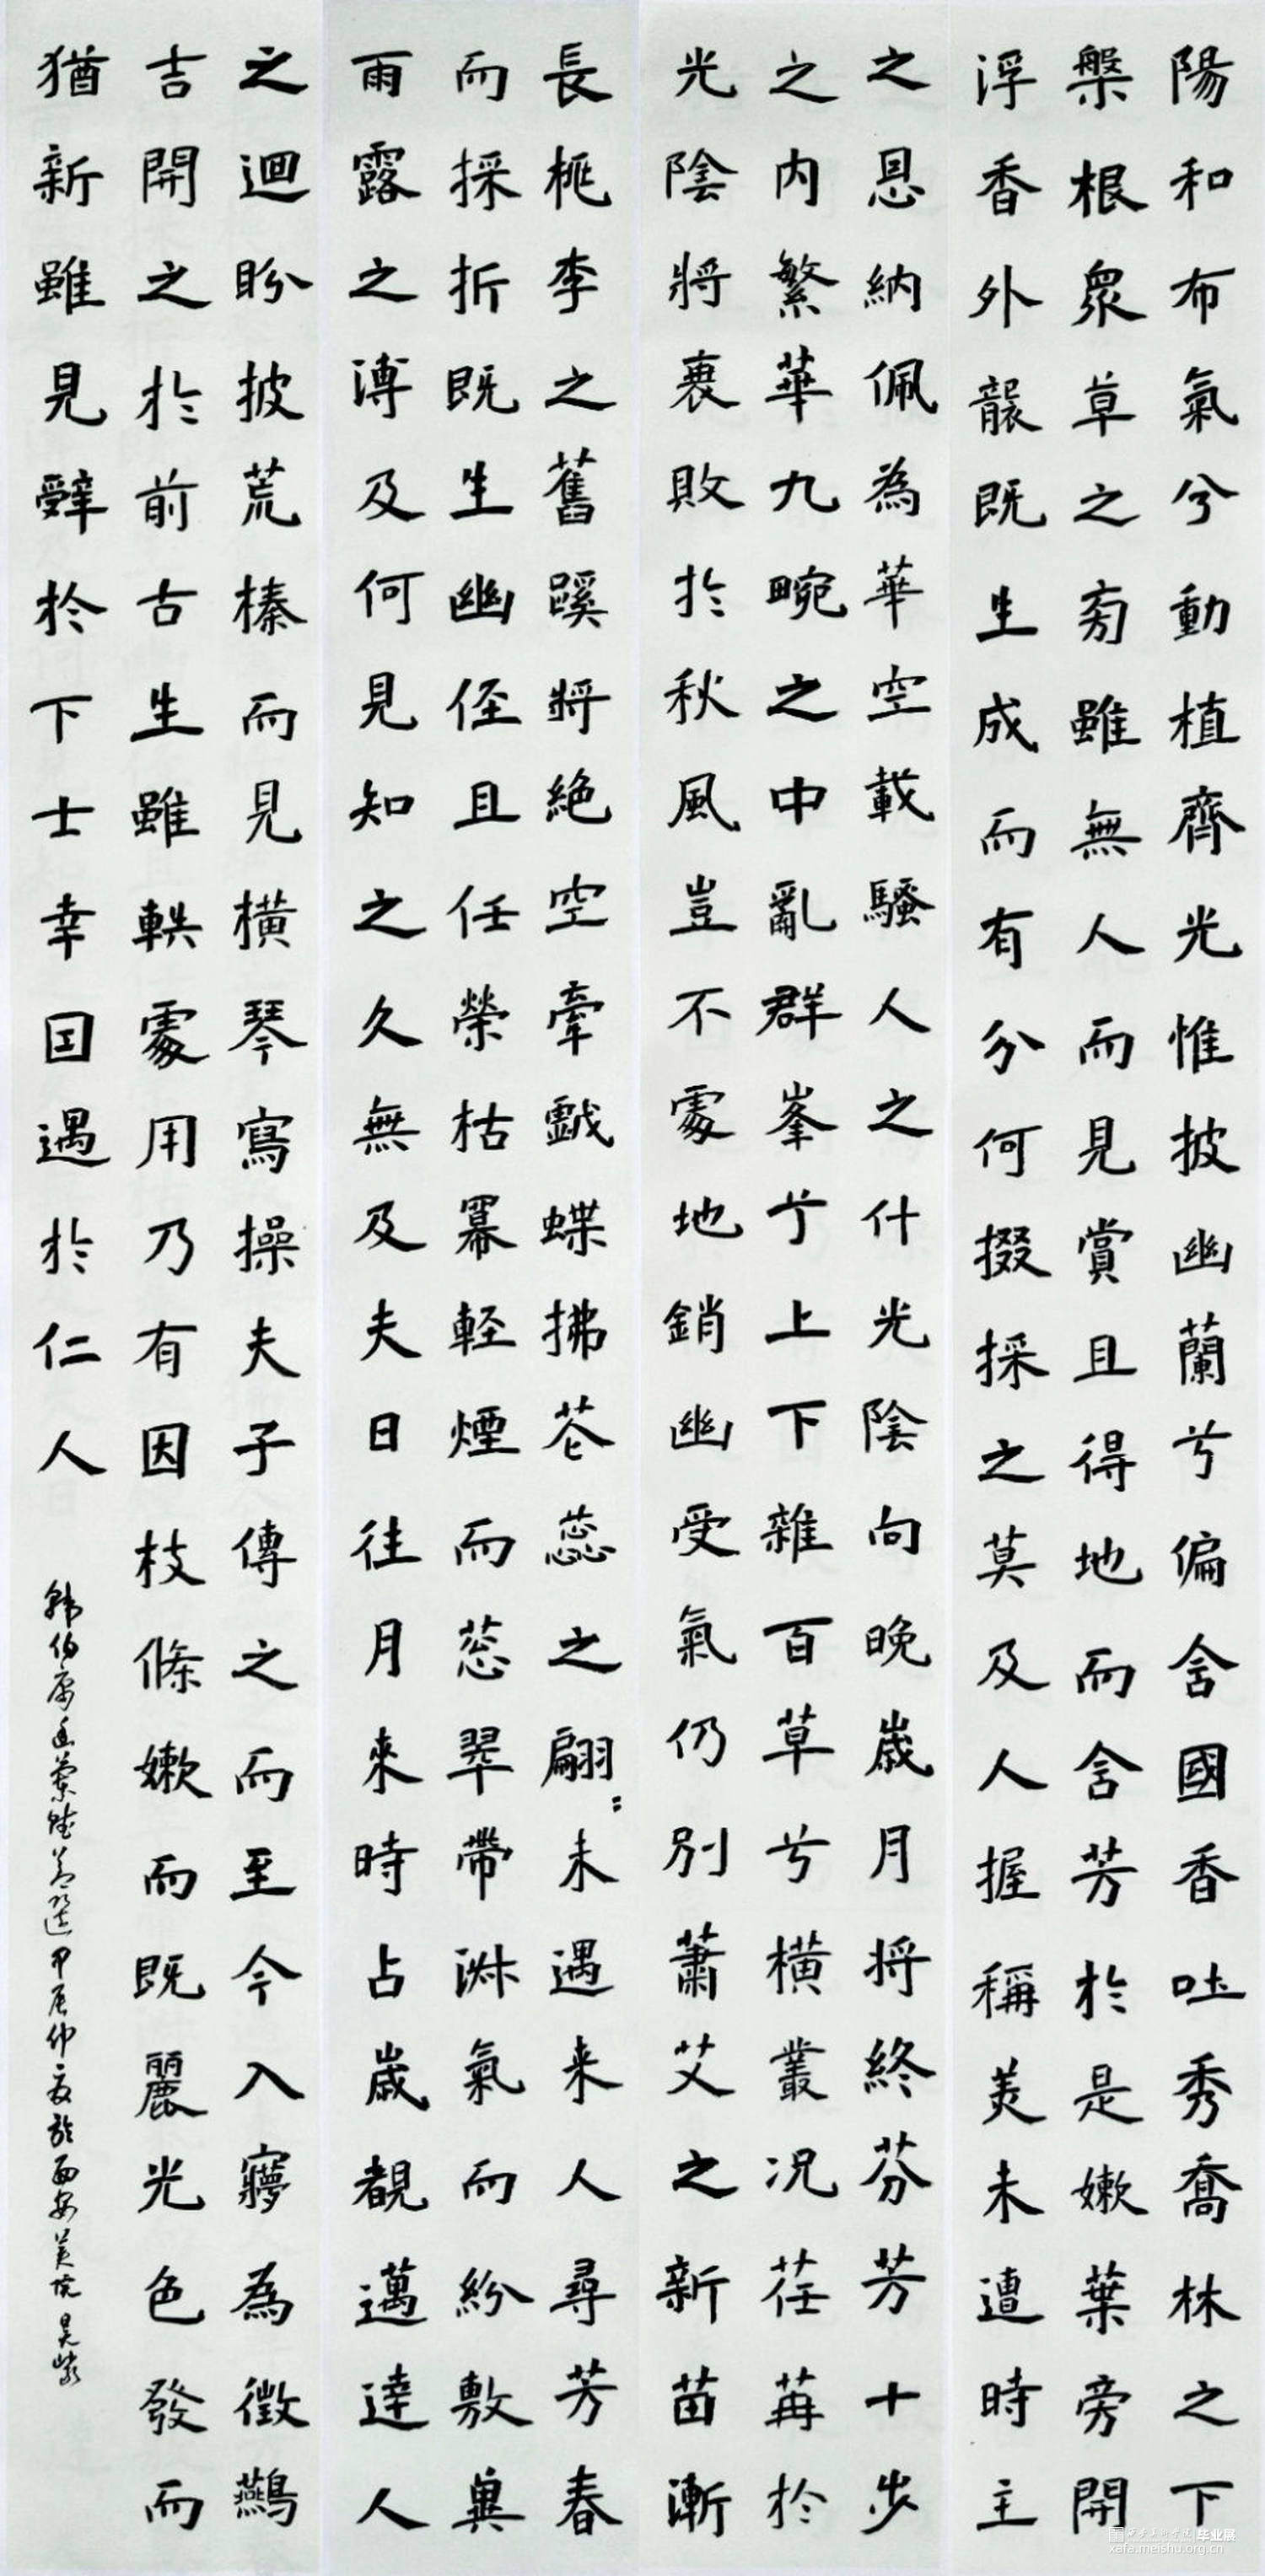 陽和布氣兮動植齊光惟披幽蘭兮偏含國香吐秀喬林之下
槃根衆草之旁雖無人而見賞且得地而含芳於是嫩葉旁開
浮香外襲既生成而有分何掇採之莫及人握稱美未遭時主
之恩納佩為華空載騷人之什光陰向晚歲月将終芬芳十步
之内繁華九畹之中亂群峯兮上下雜百草兮橫叢况荏苒於
光陰將衰敗於秋風豈不處地銷幽受氣仍別蕭艾之新苗漸
長桃李之舊蹊將絶空牽戲蝶拂花蕊之翩〻未遇来人尋芳春
而採折既生幽徑且任榮枯冪輕煙而蕊翠帶淋氣而紛敷與
雨露之溥及何見知之久無及夫日往月來時占歲覩邁達人
之迴盼披荒榛而見橫琴寫操夫子傳之而至今入寢為徵鷰
吉開之於前古生雖軼處用乃有因枝條嫩而既麗光色發而
猶新雖見辭於下士幸因遇於仁人
韓伯庸幽蘭賦 甲辰仲夏於西安美院
毕业展
xafa.meishu.org.cn